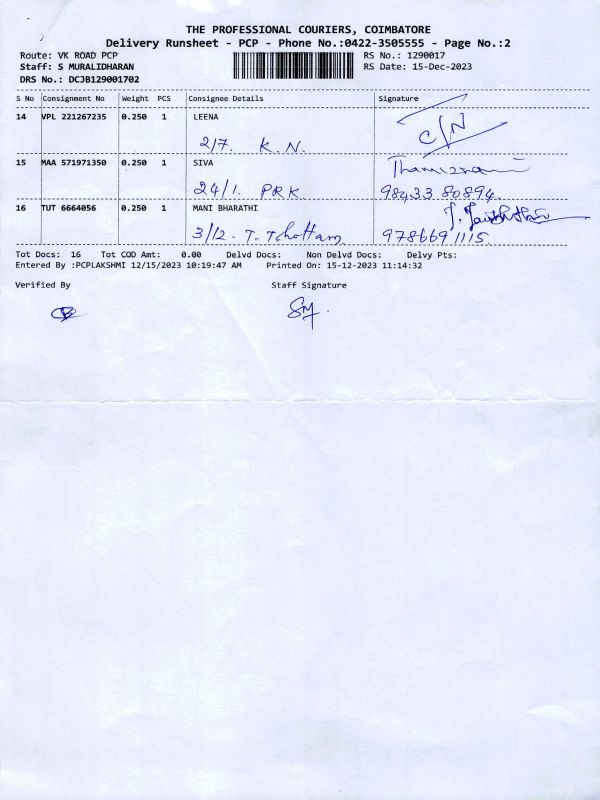 THE PROFESSIONAL COURIERS, COIMBATORE
Delivery Runsheet - PCP - Phone No.:0422-3505555 - Page No.:2
Route: VK ROAD PCP RS No.: 1290017
Staff: S MURALIDHARAN RS Date: 15-Dec-2023
DRS No.: DCJB129001702
S No Consignment No Weight PCS Consignee Details Signature
14 VPL 221267235 0.250 1 LEENA
2/7. K.N. C/N
15 MAA 571971350 0.250 1 SIVA
24/1. PRK 98433 80894.
16 TUT 6664056 0.250 1 MANI BHARATHI
3/12 - T. Tchottam 9786691115
Tot Docs: 16 Tot COD Amt: 0.00 Delvd Docs: Non Delvd Docs: Delvy Pts:
Entered By :PCPLAKSHMI 12/15/2023 10:19:47 AM Printed On: 15-12-2023 11:14:32
Verified By Staff Signature